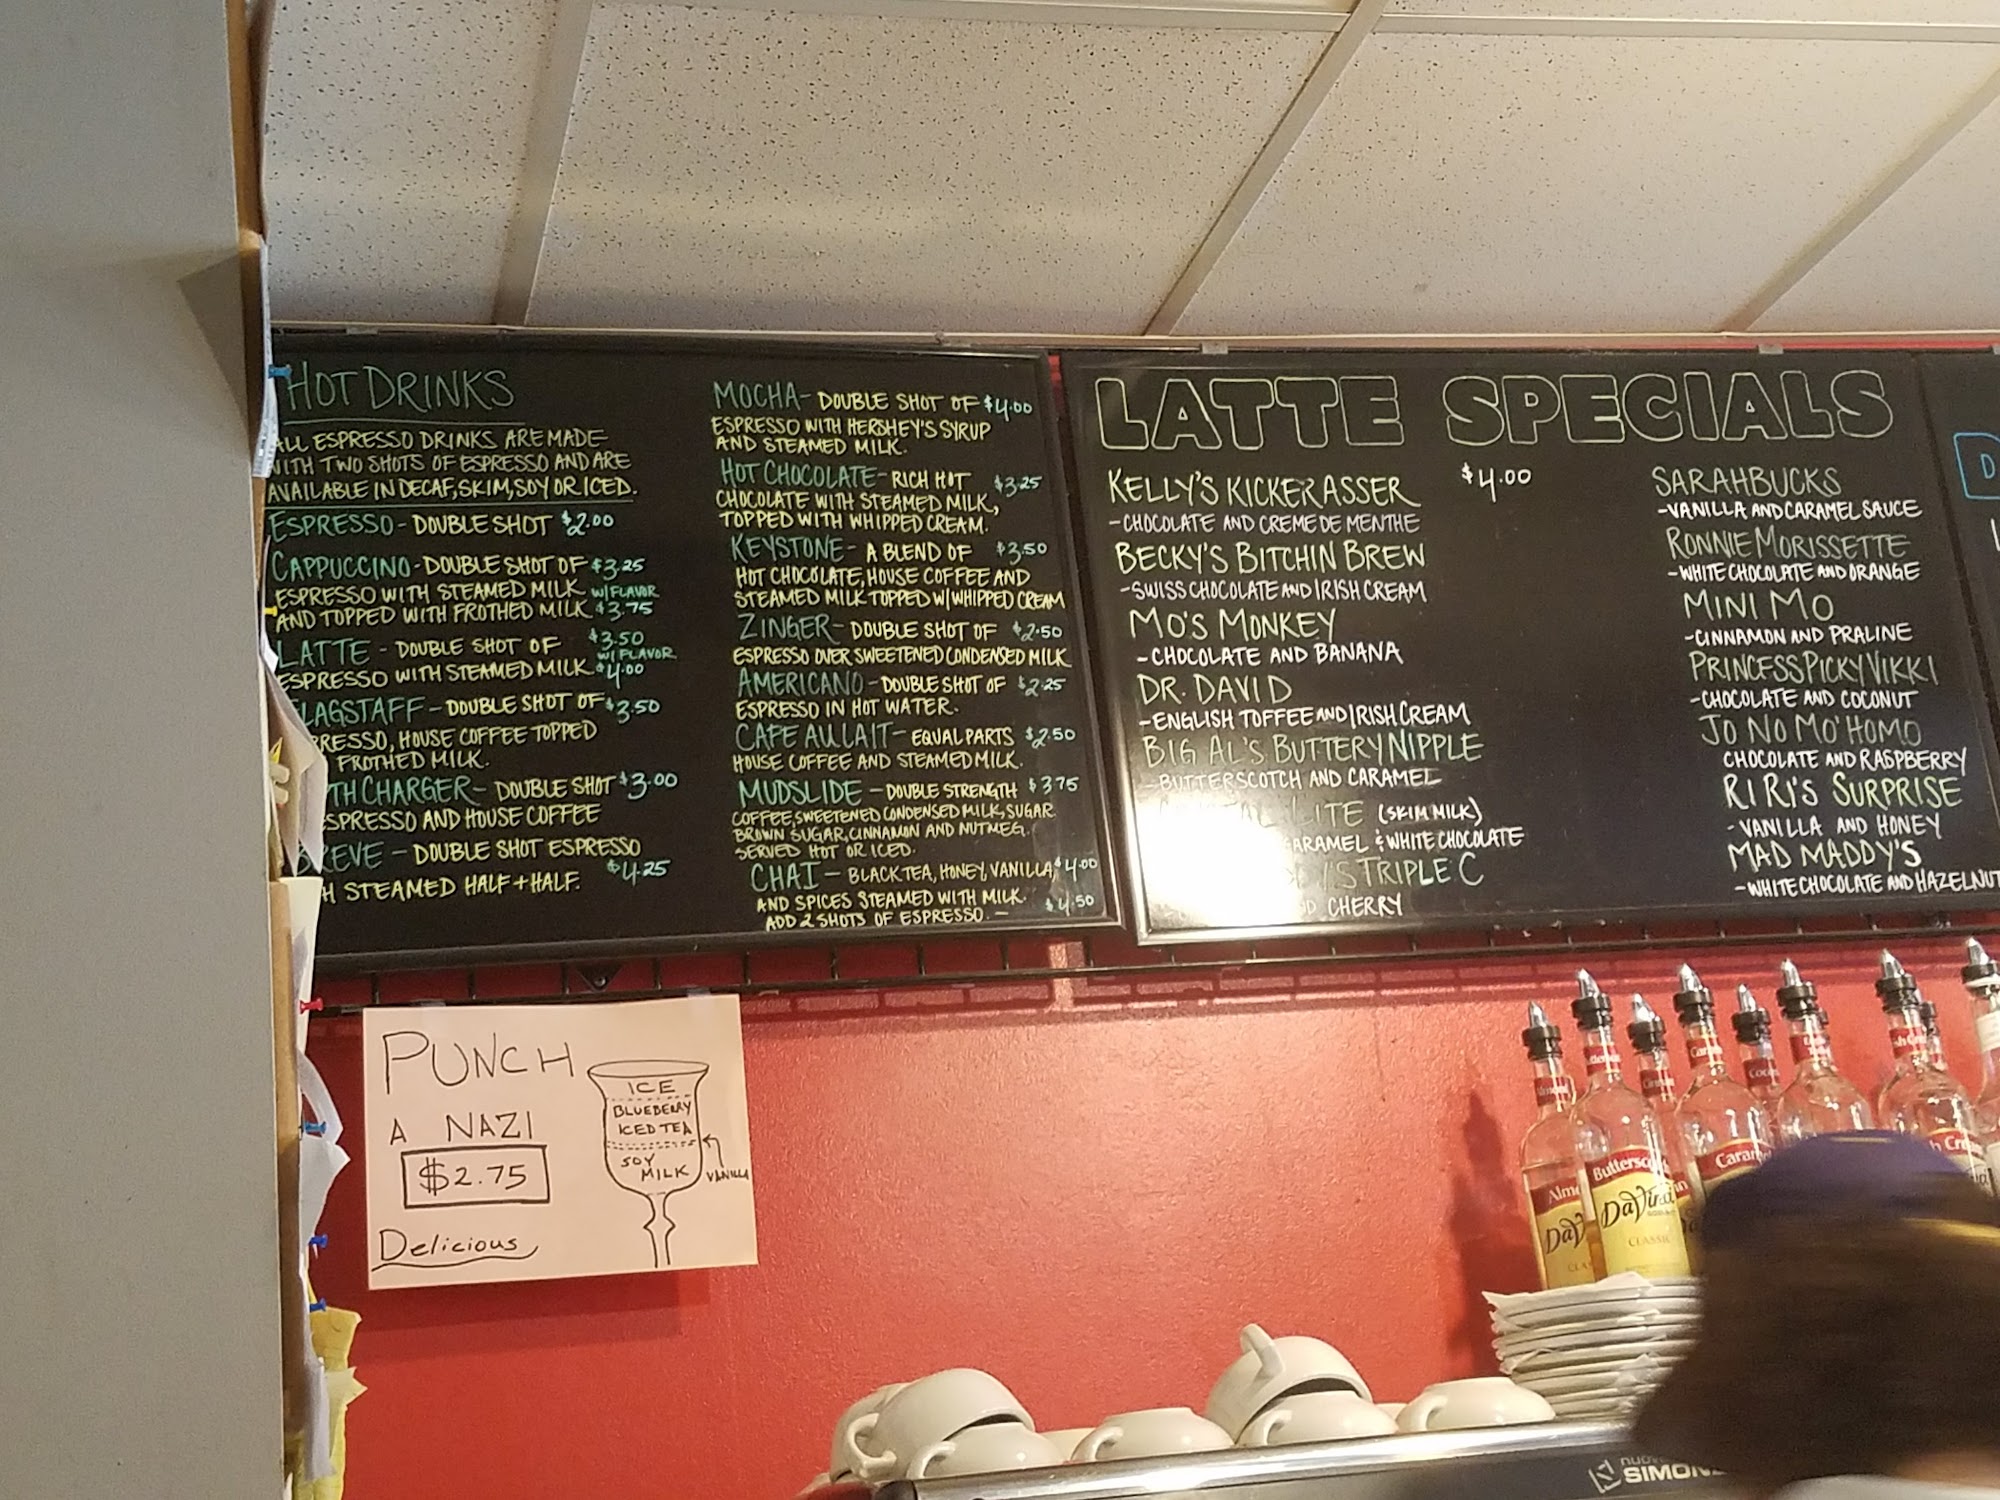 HOT DRINKS
ALL ESPRESSO DRINKS ARE MADE
WITH TWO SHOTS OF ESPRESSO AND ARE
AVAILABLE IN DECAF, SKIM, SOY OR ICED.
ESPRESSO - DOUBLE SHOT $2.00
CAPPUCCINO - DOUBLE SHOT OF $3.25
ESPRESSO WITH STEAMED MILK W/ FLAVOR
AND TOPPED WITH FROTHED MILK $3.75
LATTE - DOUBLE SHOT OF $3.50
W/ FLAVOR
ESPRESSO WITH STEAMED MILK $4.00
FLAGSTAFF - DOUBLE SHOT OF $3.50
PRESSO, HOUSE COFFEE TOPPED
FROTHED MILK.
TH CHARGER - DOUBLE SHOT $3.00
SPRESSO AND HOUSE COFFEE
BREVE - DOUBLE SHOT ESPRESSO
$4.25
H STEAMED HALF + HALF.
MOCHA - DOUBLE SHOT OF $4.00
ESPRESSO WITH HERSHEY'S SYRUP
AND STEAMED MILK.
HOT CHOCOLATE - RICH HOT $3.25
CHOCOLATE WITH STEAMED MILK,
TOPPED WITH WHIPPED CREAM.
KEYSTONE - A BLEND OF $3.50
HOT CHOCOLATE, HOUSE COFFEE AND
STEAMED MILK TOPPED W/ WHIPPED CREAM
ZINGER - DOUBLE SHOT OF $2.50
ESPRESSO OVER SWEETENED CONDENSED MILK
AMERICANO - DOUBLE SHOT OF $2.25
ESPRESSO IN HOT WATER.
CAFE AU LAIT - EQUAL PARTS $2.50
HOUSE COFFEE AND STEAMED MILK.
MUDSLIDE - DOUBLE STRENGTH $3.75
COFFEE, SWEETENED CONDENSED MILK, SUGAR
BROWN SUGAR, CINNAMON AND NUTMEG.
SERVED HOT OR ICED.
CHAI - BLACK TEA, HONEY, VANILLA, $4.00
AND SPICES STEAMED WITH MILK.
ADD 2 SHOTS OF ESPRESSO. - $4.50
LATTE SPECIALS
$4.00
KELLY'S KICKERASSER
- CHOCOLATE AND CREME DE MENTHE
BECKY'S BITCHIN BREW
- SWISS CHOCOLATE AND IRISH CREAM
MO'S MONKEY
- CHOCOLATE AND BANANA
DR. DAVID
- ENGLISH TOFFEE AND IRISH CREAM
BIG AL'S BUTTERY NIPPLE
- BUTTERSCOTCH AND CARAMEL
LITE (SKIM MILK)
ARAMEL & WHITE CHOCOLATE
'S TRIPLE C
CHERRY
SARAHBUCKS
- VANILLA AND CARAMEL SAUCE
RONNIE MORISSETTE
- WHITE CHOCOLATE AND ORANGE
MINI MO
- CINNAMON AND PRALINE
PRINCESS PICKY VIKKI
- CHOCOLATE AND COCONUT
JO NO MO' HOMO
CHOCOLATE AND RASPBERRY
RI RI'S SURPRISE
- VANILLA AND HONEY
MAD MADDY'S
- WHITE CHOCOLATE AND HAZELNUT
D
PUNCH
A NAZI
$2.75
Delicious
ICE
BLUEBERRY
ICED TEA
SOY
MILK
VANILLA
Buttersc
DaVinci
CLASSIC
Alm
DaV
CLAS
Caram
SIMON